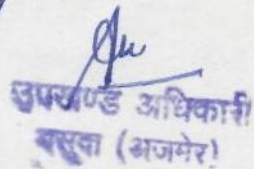 उपखण्ड अधिकारी
मसूदा (अजमेर)